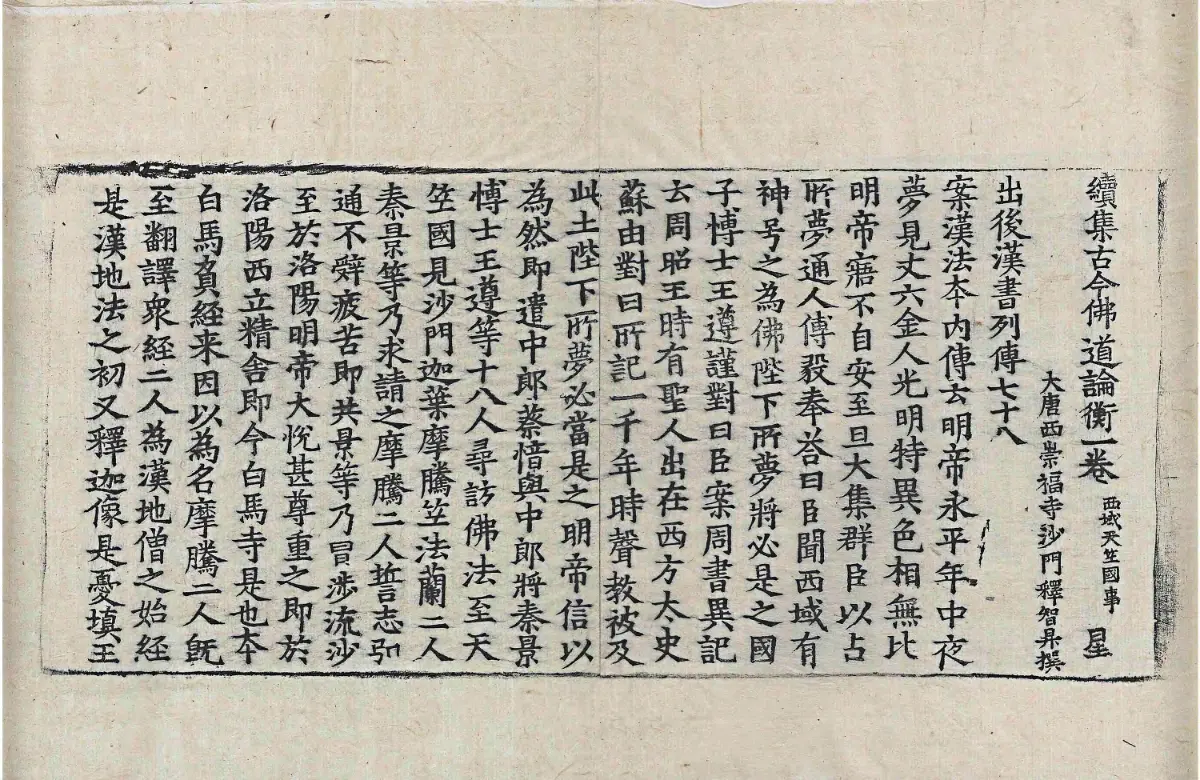 續集古今佛道論衡一卷 西域天竺國事 星
大唐西崇福寺沙門釋智昇撰
出後漢書列傳七十八
案漢法本內傳云明帝永平年中夜
夢見丈六金人光明特異色相無比
明帝寤不自安至旦大集群臣以占
所夢通人傅毅奉荅曰臣聞西域有
神号之為佛陛下所夢將必是之國
子博士王遵謹對曰臣案周書異記
云周昭王時有聖人出在西方太史
蘇由對曰所記一千年時聲教被及
此土陛下所夢必當是之明帝信以
為然即遣中郎蔡愔與中郎將秦景
博士王遵等十八人尋訪佛法至天
竺國見沙門迦葉摩騰竺法蘭二人
秦景等乃求請之摩騰二人誓志弘
通不辭疲苦即共景等乃冒涉流沙
至於洛陽明帝大悅甚尊重之即於
洛陽西立精舍即今白馬寺是也本
白馬負経来因以為名摩騰二人旣
至翻譯衆経二人為漢地僧之始経
是漢地法之初又釋迦像是憂填王